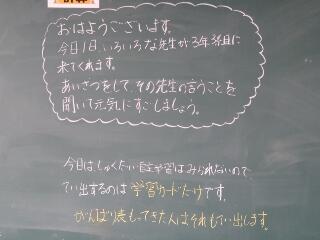 おはようございます。
今日1日、いろいろな先生が3年3組に
来てくれます。
あいさつをして、その先生の言うことを
聞いて元気にすごしましょう。
今日はしゅくだい、自主学習はみられないので
てい出するのは学習カードだけです。
がんばり表もってきた人はそれもてい出します。